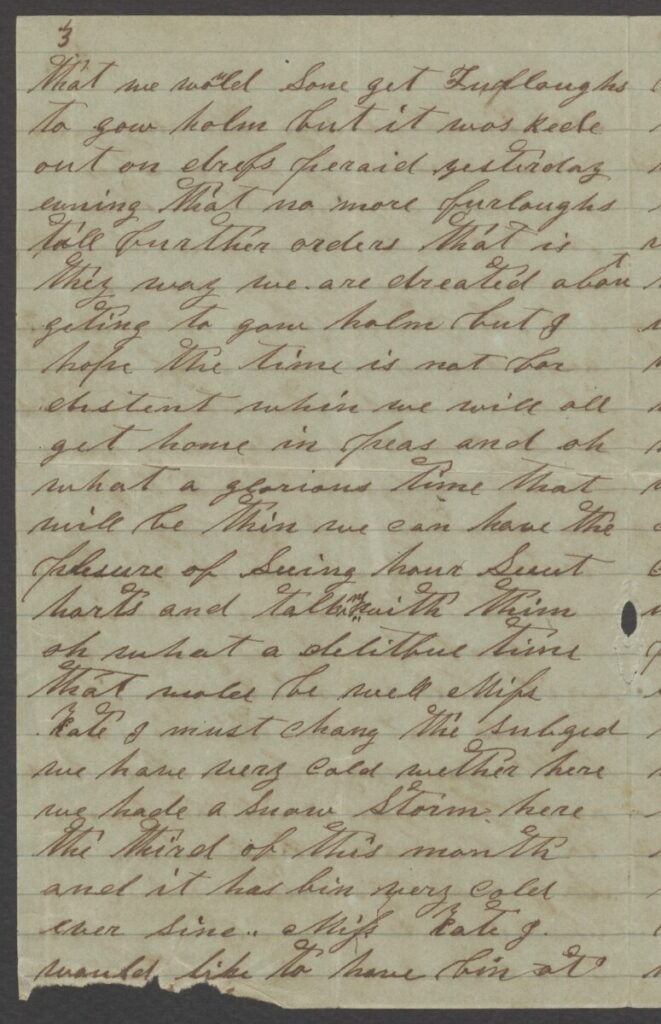 3
that we would Sone get Furloughs
to gow holm but it was Rede
out on dress peraid yesterday
evning that no more furloughs
till further orders that is
they way we are dreated about
geting to gow holm but I
hope the time is not for
distent whin we will all
get home in peas and oh
what a glorious time that
will be thin we can have the
plesure of Seeing hour Sweet
harts and talk with thim
oh what a delitful time
that wold be well Miss
Kate I must chang the subged
we have very cold wether here
we hade a Snow Storm here
the third of this month
and it has bin very cold
ever sine.. Miss Kate I.
would like to have bin at